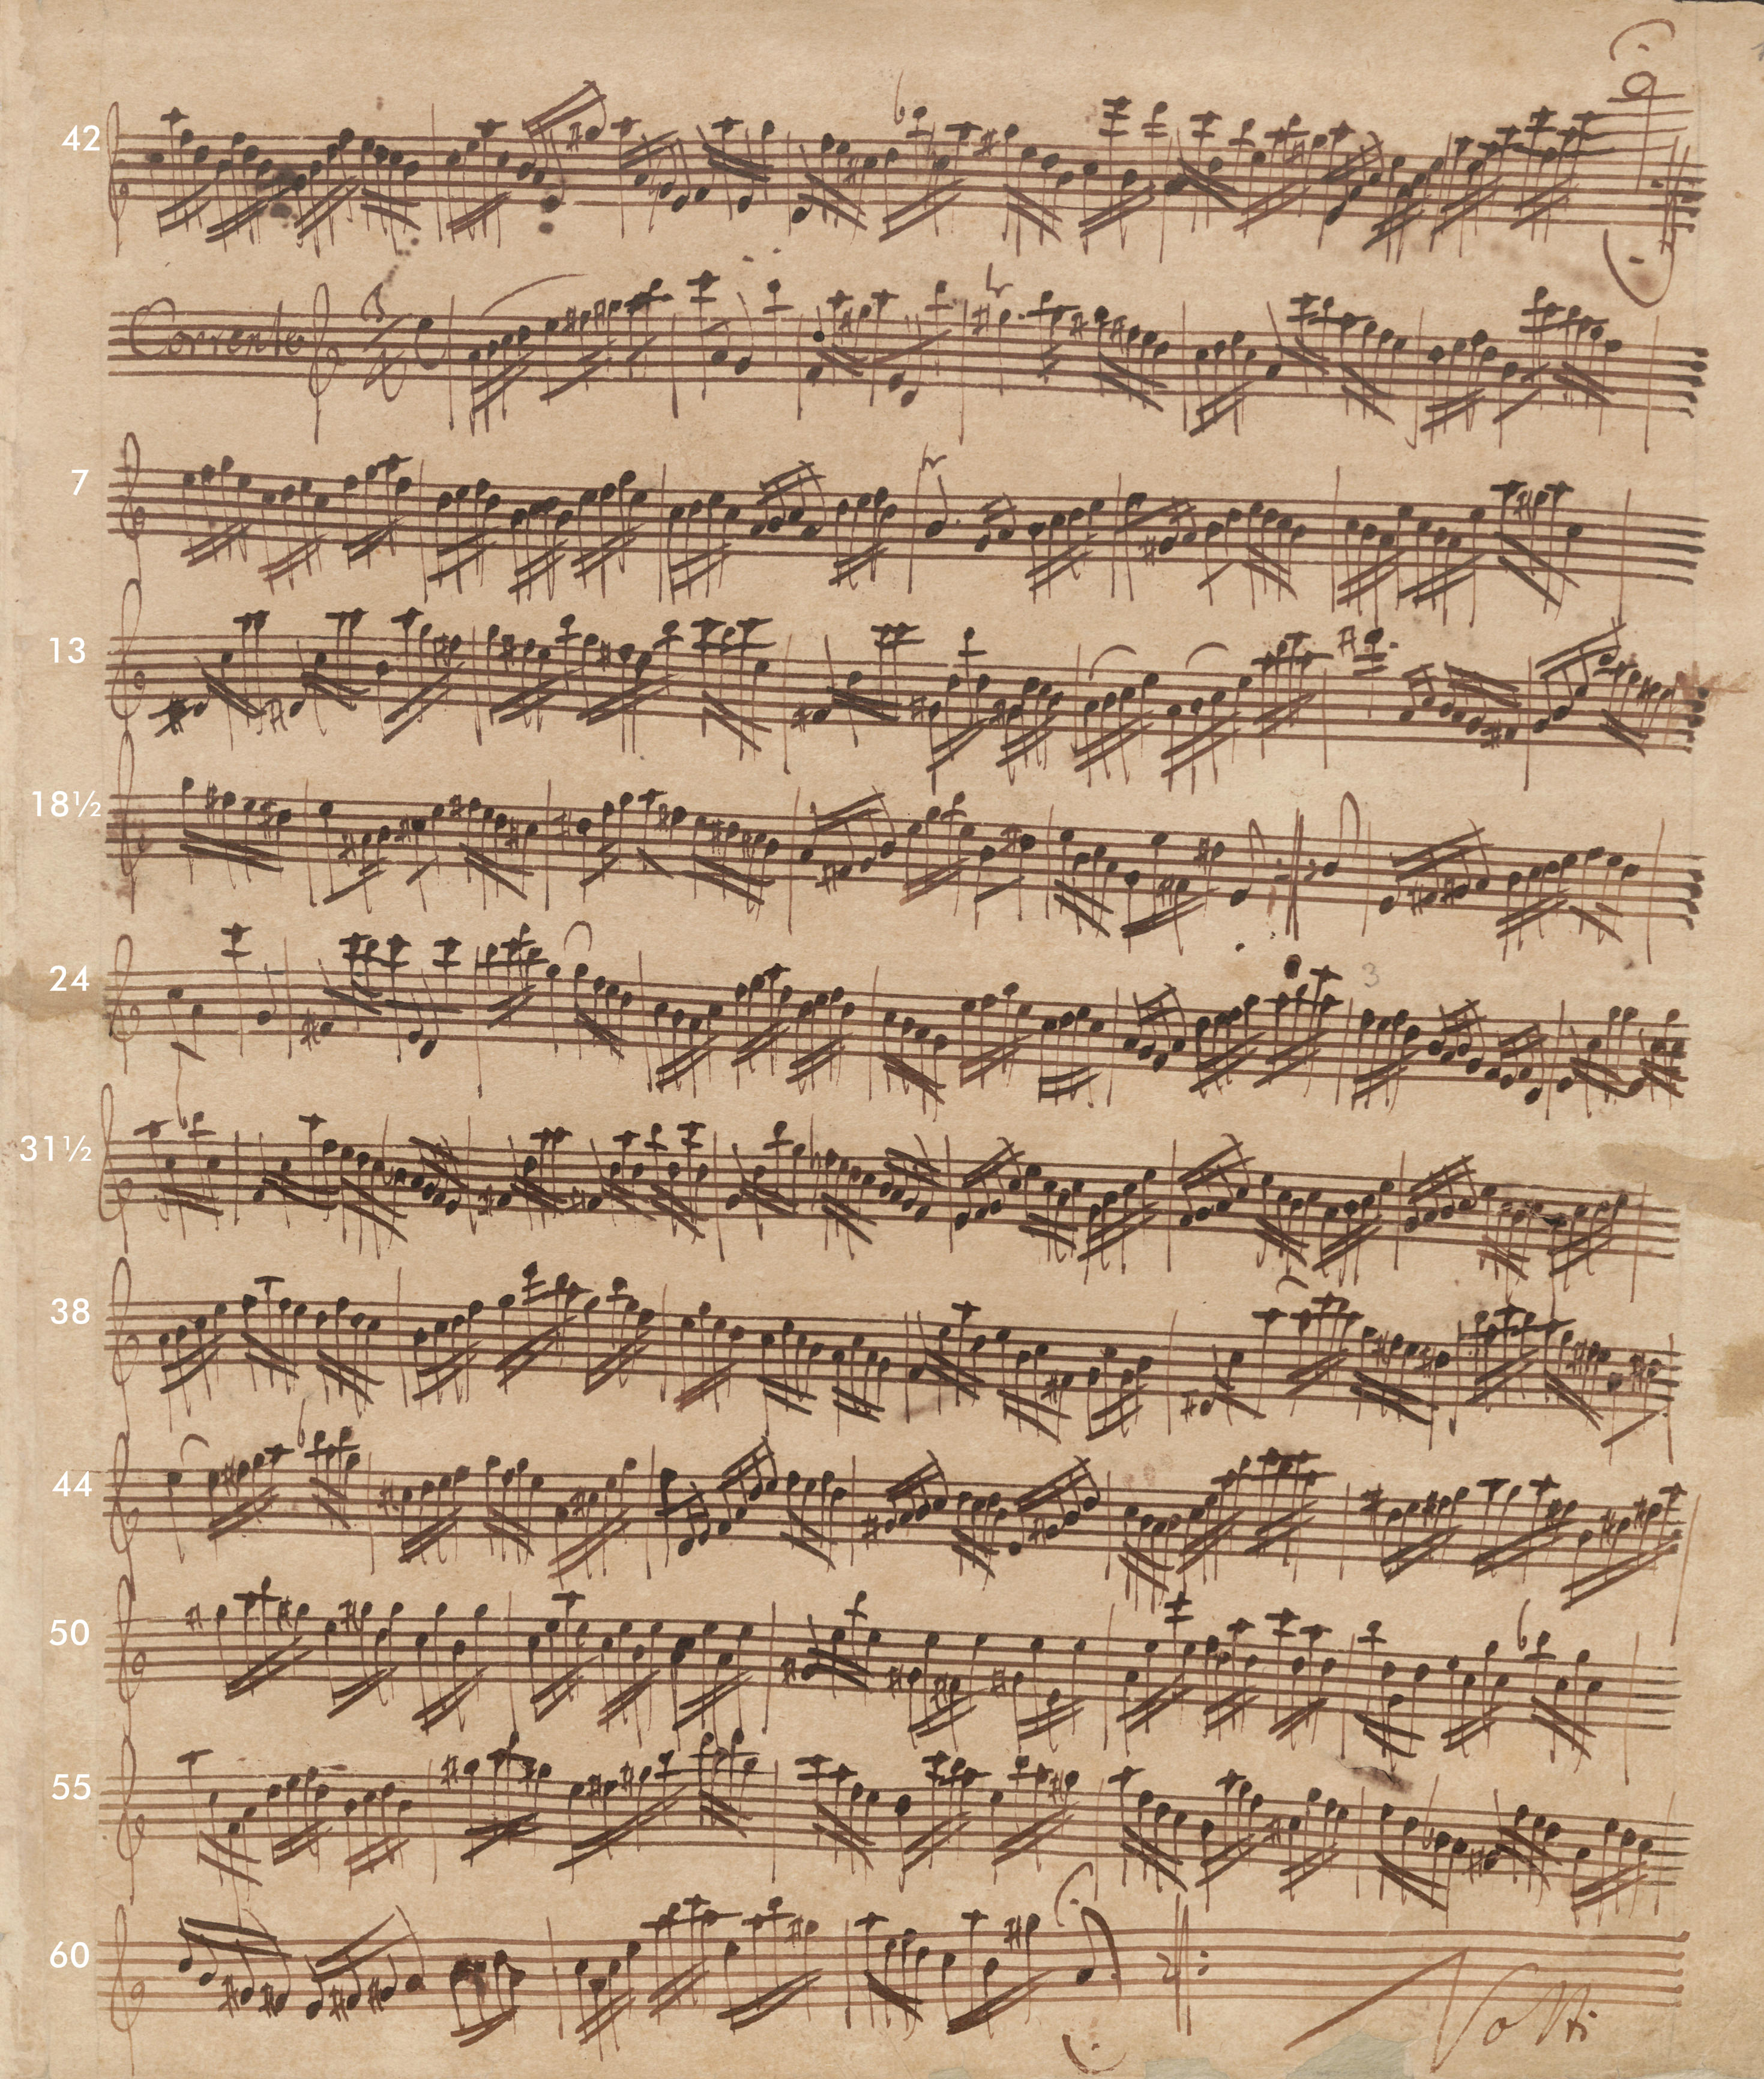 42
Corrente
7
tr
13
18½
24
3
31½
38
44
50
55
60
Volti